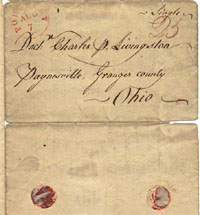 Single
25
AUG
7
Doct.r Charles D. Livingston
Paynesville, Granger county
Ohio